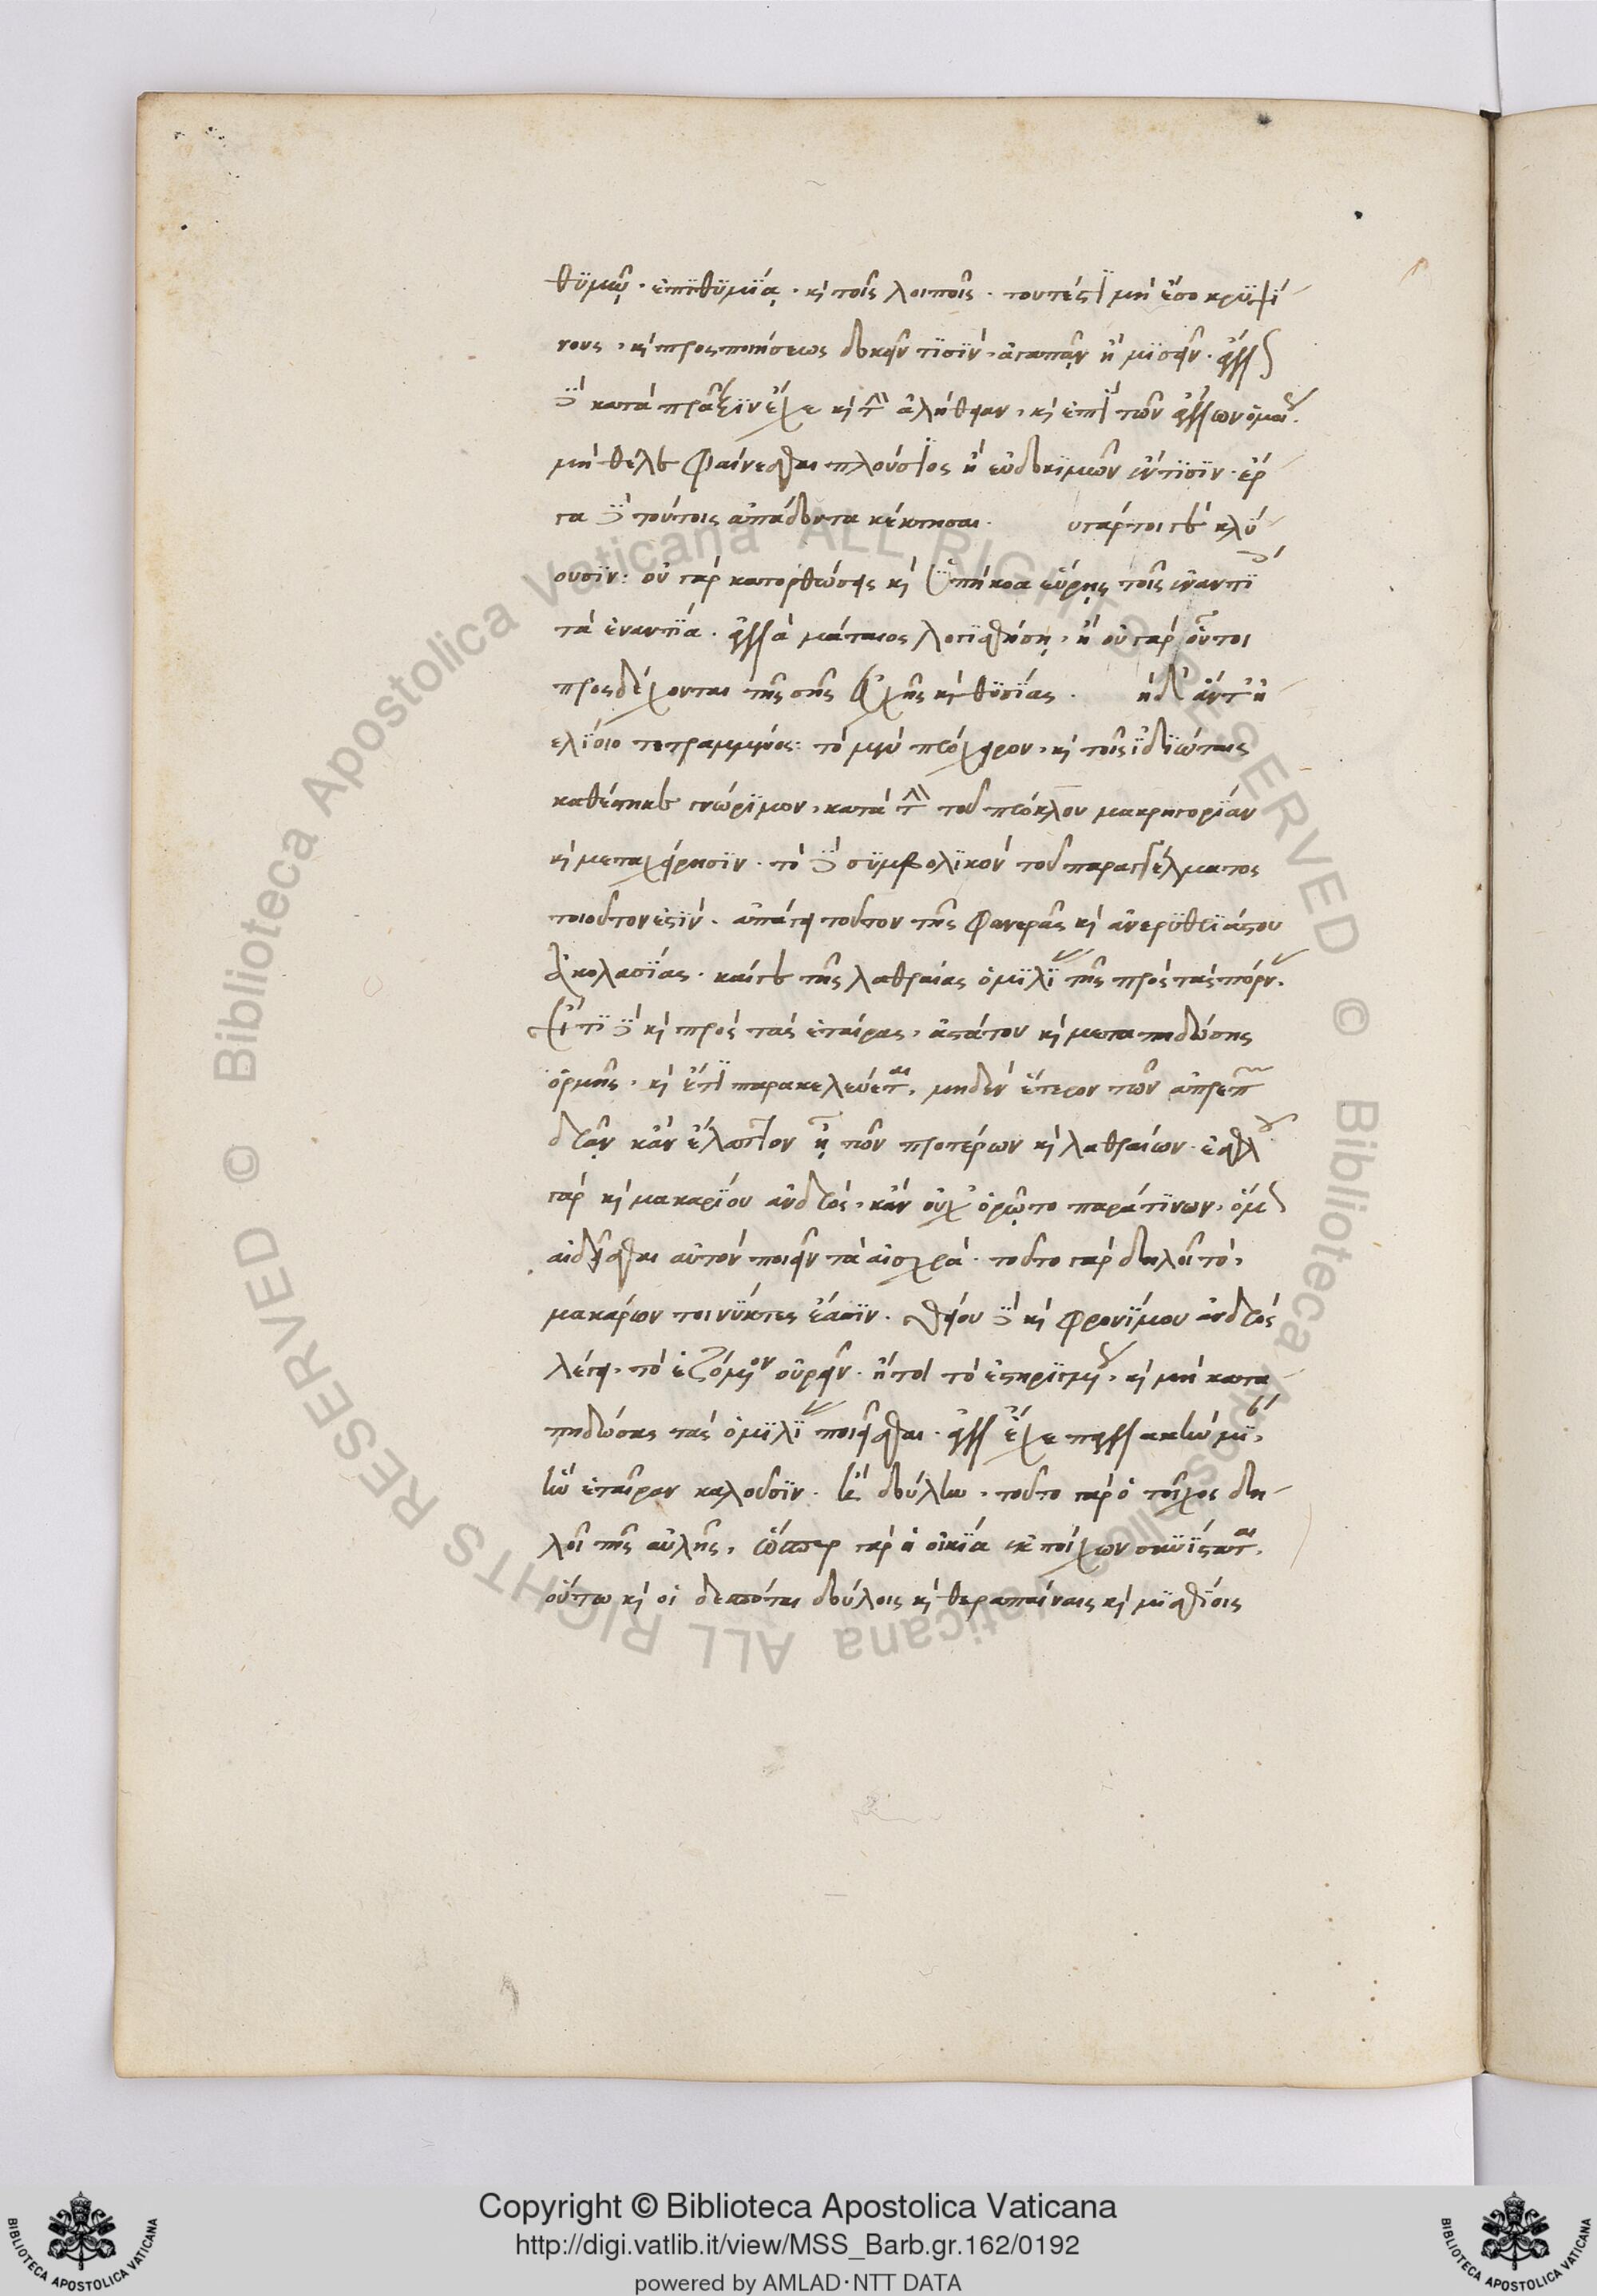 θϋμῶ. ἐπϊθϋμΐα. καὶ τοῖς λοιποῖς. τουτέστϊ μὴ ἔσο κρυψί
νους, καὶ προσποιήσεως δοκεῖν τϊσΐν, ἀγαπᾶν ἢ μϊσεῖν. ἀλλ
δὲ κατὰ πρᾶξϊν ἔχε καὶ τὴν ἀλήθειαν, καὶ ἐπὶ τῶν ἄλλων ὁμοί.
μὴ θέλε φαίνεσθαι πλούσϊος ἢ εὐδοκϊμῶν ἔν τϊσϊν. ἔρ
γα δὲ τούτοις ἀπάδοντα κέκτησαι. γάρ τοι γε κλύ
ουσϊν: οὐ γὰρ κατορθώσεις καὶ ὑπήκοα εὕρης τοῖς ἐναντϊ
τὰ ἐναντΐα. ἀλλὰ μάταιος λογϊσθήση, ἢ οὐ γὰρ οὗτοι
προσδέχονται τῆς σῆς εὐχῆς καὶ θϋσΐας. ἠδ' ἄντ' ἠ
ελΐοιο τετραμμένος: τὸ μὲν πρόχειρον, καὶ τοῖς ἰδϊώταις
καθέστηκε γνώρϊμον, κατὰ τὴν τοῦ πρόκλου μακρηγορΐαν
καὶ μεταχείρησϊν. τὸ δὲ σϋμβολϊκὸν τοῦ παραγγέλματος
τοιοῦτον ἐστΐν. ἀπάγει τοῦτον τῆς φανερᾶς καὶ ἀνερϋθρϊάστου
ἀκολασΐας. καί γε τῆς λαθραίας ὁμϊλΐ τῆς πρὸς τὰς πόρν.
ἔτϊ δὲ καὶ πρὸς τὰς ἑταίρας, ἀτάτου καὶ μεταπηδώσης
ὁρμῆς. καὶ ἔτϊ παρακελεύεται, μηδὲν ἕτερον τῶν ἀπρεπ
δρᾶν κἂν ἔλαττον ἢ τῶν προτέρων καὶ λαθραίων. ἐσθλοῦ
γὰρ καὶ μακαρΐου ἀνδρὸς, κἂν οὐχ ὁρῶτο παρά τϊνων, ὅμ
αἰδεῖσθαι αὐτὸν ποιεῖν τὰ αἰσχρά. τοῦτο γὰρ δηλοῖ τὸ,
μακάρων τοι νΰκτες ἔασϊν. θείου δὲ καὶ φρονΐμου ἀνδρὸς
λέγει, τὸ ἑζόμενον οὐρεῖν. ἤτοι τὸ ἐστηρϊγμένως, καὶ μὴ κατα
πηδώσας τὰς ὁμϊλΐ ποιεῖσθαι. ἀλλ' ἔχε παλλακὼ μΐ,
ὣ ἑταῖραν καλοῦσϊν. ἢ δούλω. τοῦτο γὰρ ὁ τοῖχος δη
λοῖ τῆς αὐλῆς. ὥσπερ γὰρ ἡ οἰκΐα ἐκ τοίχων συνΐσταται,
οὕτω καὶ οἱ δεσπόται δούλοις καὶ θεραπαίναις καὶ μϊσθΐοις
Copyright © Biblioteca Apostolica Vaticana
http://digi.vatlib.it/view/MSS_Barb.gr.162/0192
powered by AMLAD·NTT DATA